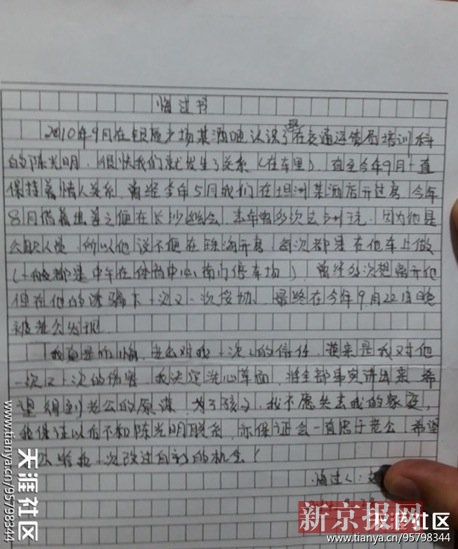 悔过书
2010年9月在银座广场某酒吧认识了在交通运管局培训科
的陈光明,很快我们就发生了关系(在车里),直至今年9月一直
保持着情人关系,曾经今年5月我们在坦洲某酒店开过房,今年
8月借着出差之便在长沙幽会,
公职人员,所以他说不便在珠海开房,每次都是在他车上做
(一般都是中午在体育中心南门停车场),曾经多次想离开他
但在他的哄骗下一次又一次
被老公发现。
我真是,老公对我一次次的信任,换来是我对他
一次又一次的伤害,我决定洗心革面,将全部事实讲出来,希
望得到老公的原谅,为了孩子,我不愿失去我的家庭,
我保证以后不和陈光明联系,亦保证会一直忠于老公,希望
给我一次改过自新的机会!
悔过人:
天涯社区
www.tianya.cn/95798344
新京报网
天涯社区
www.tianya.cn/95798344